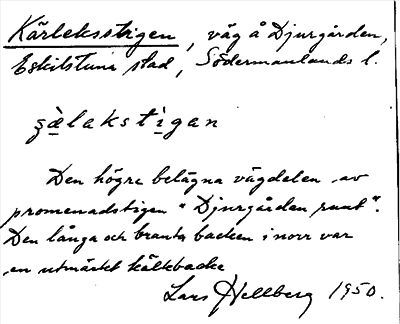 Kärleksstigen, väg å Djurgården,
Eskilstuna stad, Södermanlands l.
şä̀lakstìgan
Den högre belägna vägdelen av
promenadstigen "Djurgården runt".
Den långa och branta backen i norr var
en utmärkt kälkbacke
Lars Hellberg 1950.